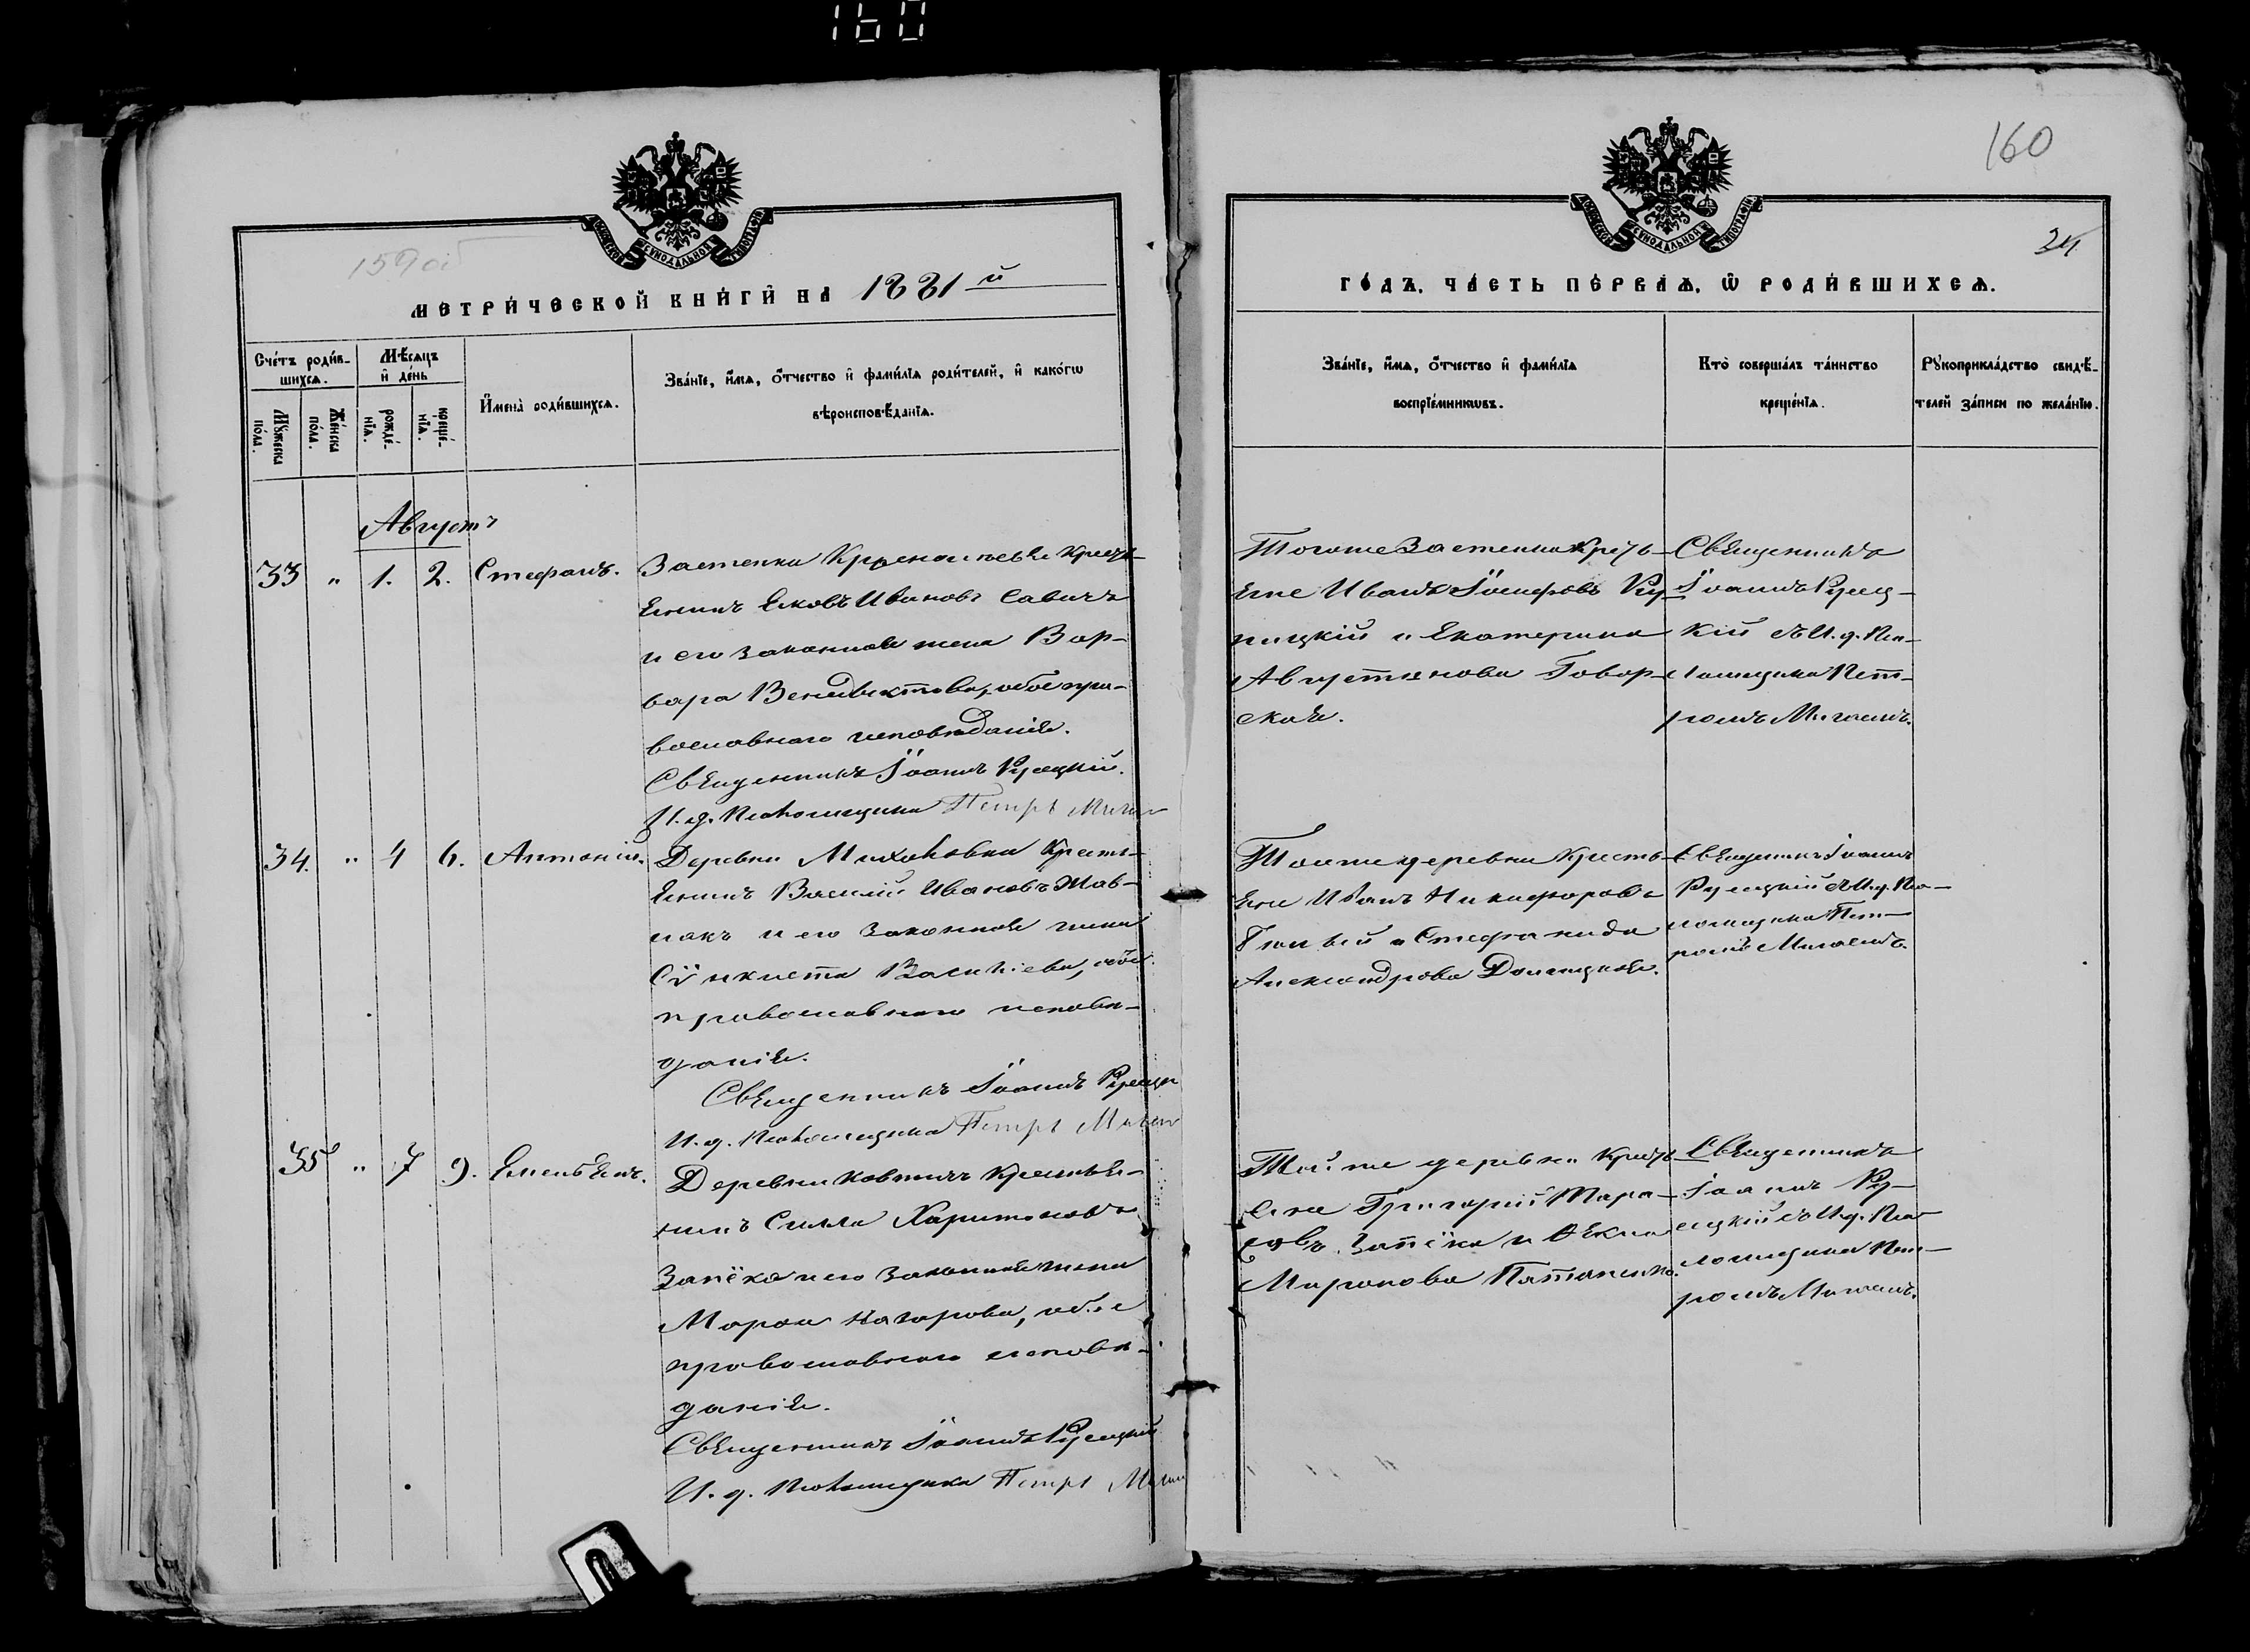 160
160
24
МЕТРИ́ЧЕСКОЙ КНИ́ГИ НА 1881й
ГО́ДЪ, ЧА́СТЬ ПЕ́РВАЯ, Ѡ РОДИ́ВШИХСЯ.
Сче́тъ роди́в-
шихся.
Мѣ́сяцъ
и де́нь
Му́жеска
по́ла.
Же́нска
по́ла.
рожде́-
нїя.
креще́-
нїя.
И́мена роди́вшихся.
Зва́нїе, и́мя, о́тчество и фами́лїя роди́телей, и како́гѡ
вѣроисповѣ́данїя.
Зва́нїе, и́мя, о́тчество и фами́лїя
воспрїе́мникѡвъ.
Кто̀ соверша́лъ та́инство
креще́нїя.
Рꙋкоприкла́дство свидѣ́-
телей за́писи по жела́нїю.
Августъ
33 " 1. 2. Стефанъ.
Застенка кресть-
янинъ Яковъ Ивановъ Савичъ
и его законная жена Вар-
вара Венедиктова, обое пра-
вославнаго исповѣданія.
Священникъ Іоаннъ Русецкій.
И. д. Псаломщика Петръ
Тогоже Застенка кресть-
яне Иванъ Іосифовъ Ру-
пицкій и Екатерина
Августинова Говор-
ская.
Священникъ
Іоаннъ Русец-
кій съ И. д. Пса-
ломщика Пет-
ромъ
34. " 4 6. Антоній.
Деревни Михаловки кресть-
янинъ Василій Ивановъ
и его законная жена
Сѵнклита Васильева, обое
православнаго исповѣ-
данія.
Священникъ Іоаннъ Русецк
И. д. Псаломщика Петръ
Тойже деревни кресть-
яне Иванъ Никифоровъ
и Стефанида
Александрова
Священникъ Іоаннъ
Русецкій съ И. д. Пса-
ломщика Пет-
ромъ
35 " 7 9. Емельянъ.
Деревни крестья-
нинъ Силла Харитоновъ
Запёка и его законная жена
Марѳа Назарова, обое
православнаго исповѣ-
данія.
Священникъ Іоаннъ Русецкій
И. д. Псаломщика Петръ
Той же деревни кресть-
яне Григорій Тара-
совъ Запёка и Ѳекла
Миронова
Священникъ
Іоаннъ Ру-
сецкій съ И. д. Пса-
ломщика Пет-
ромъ